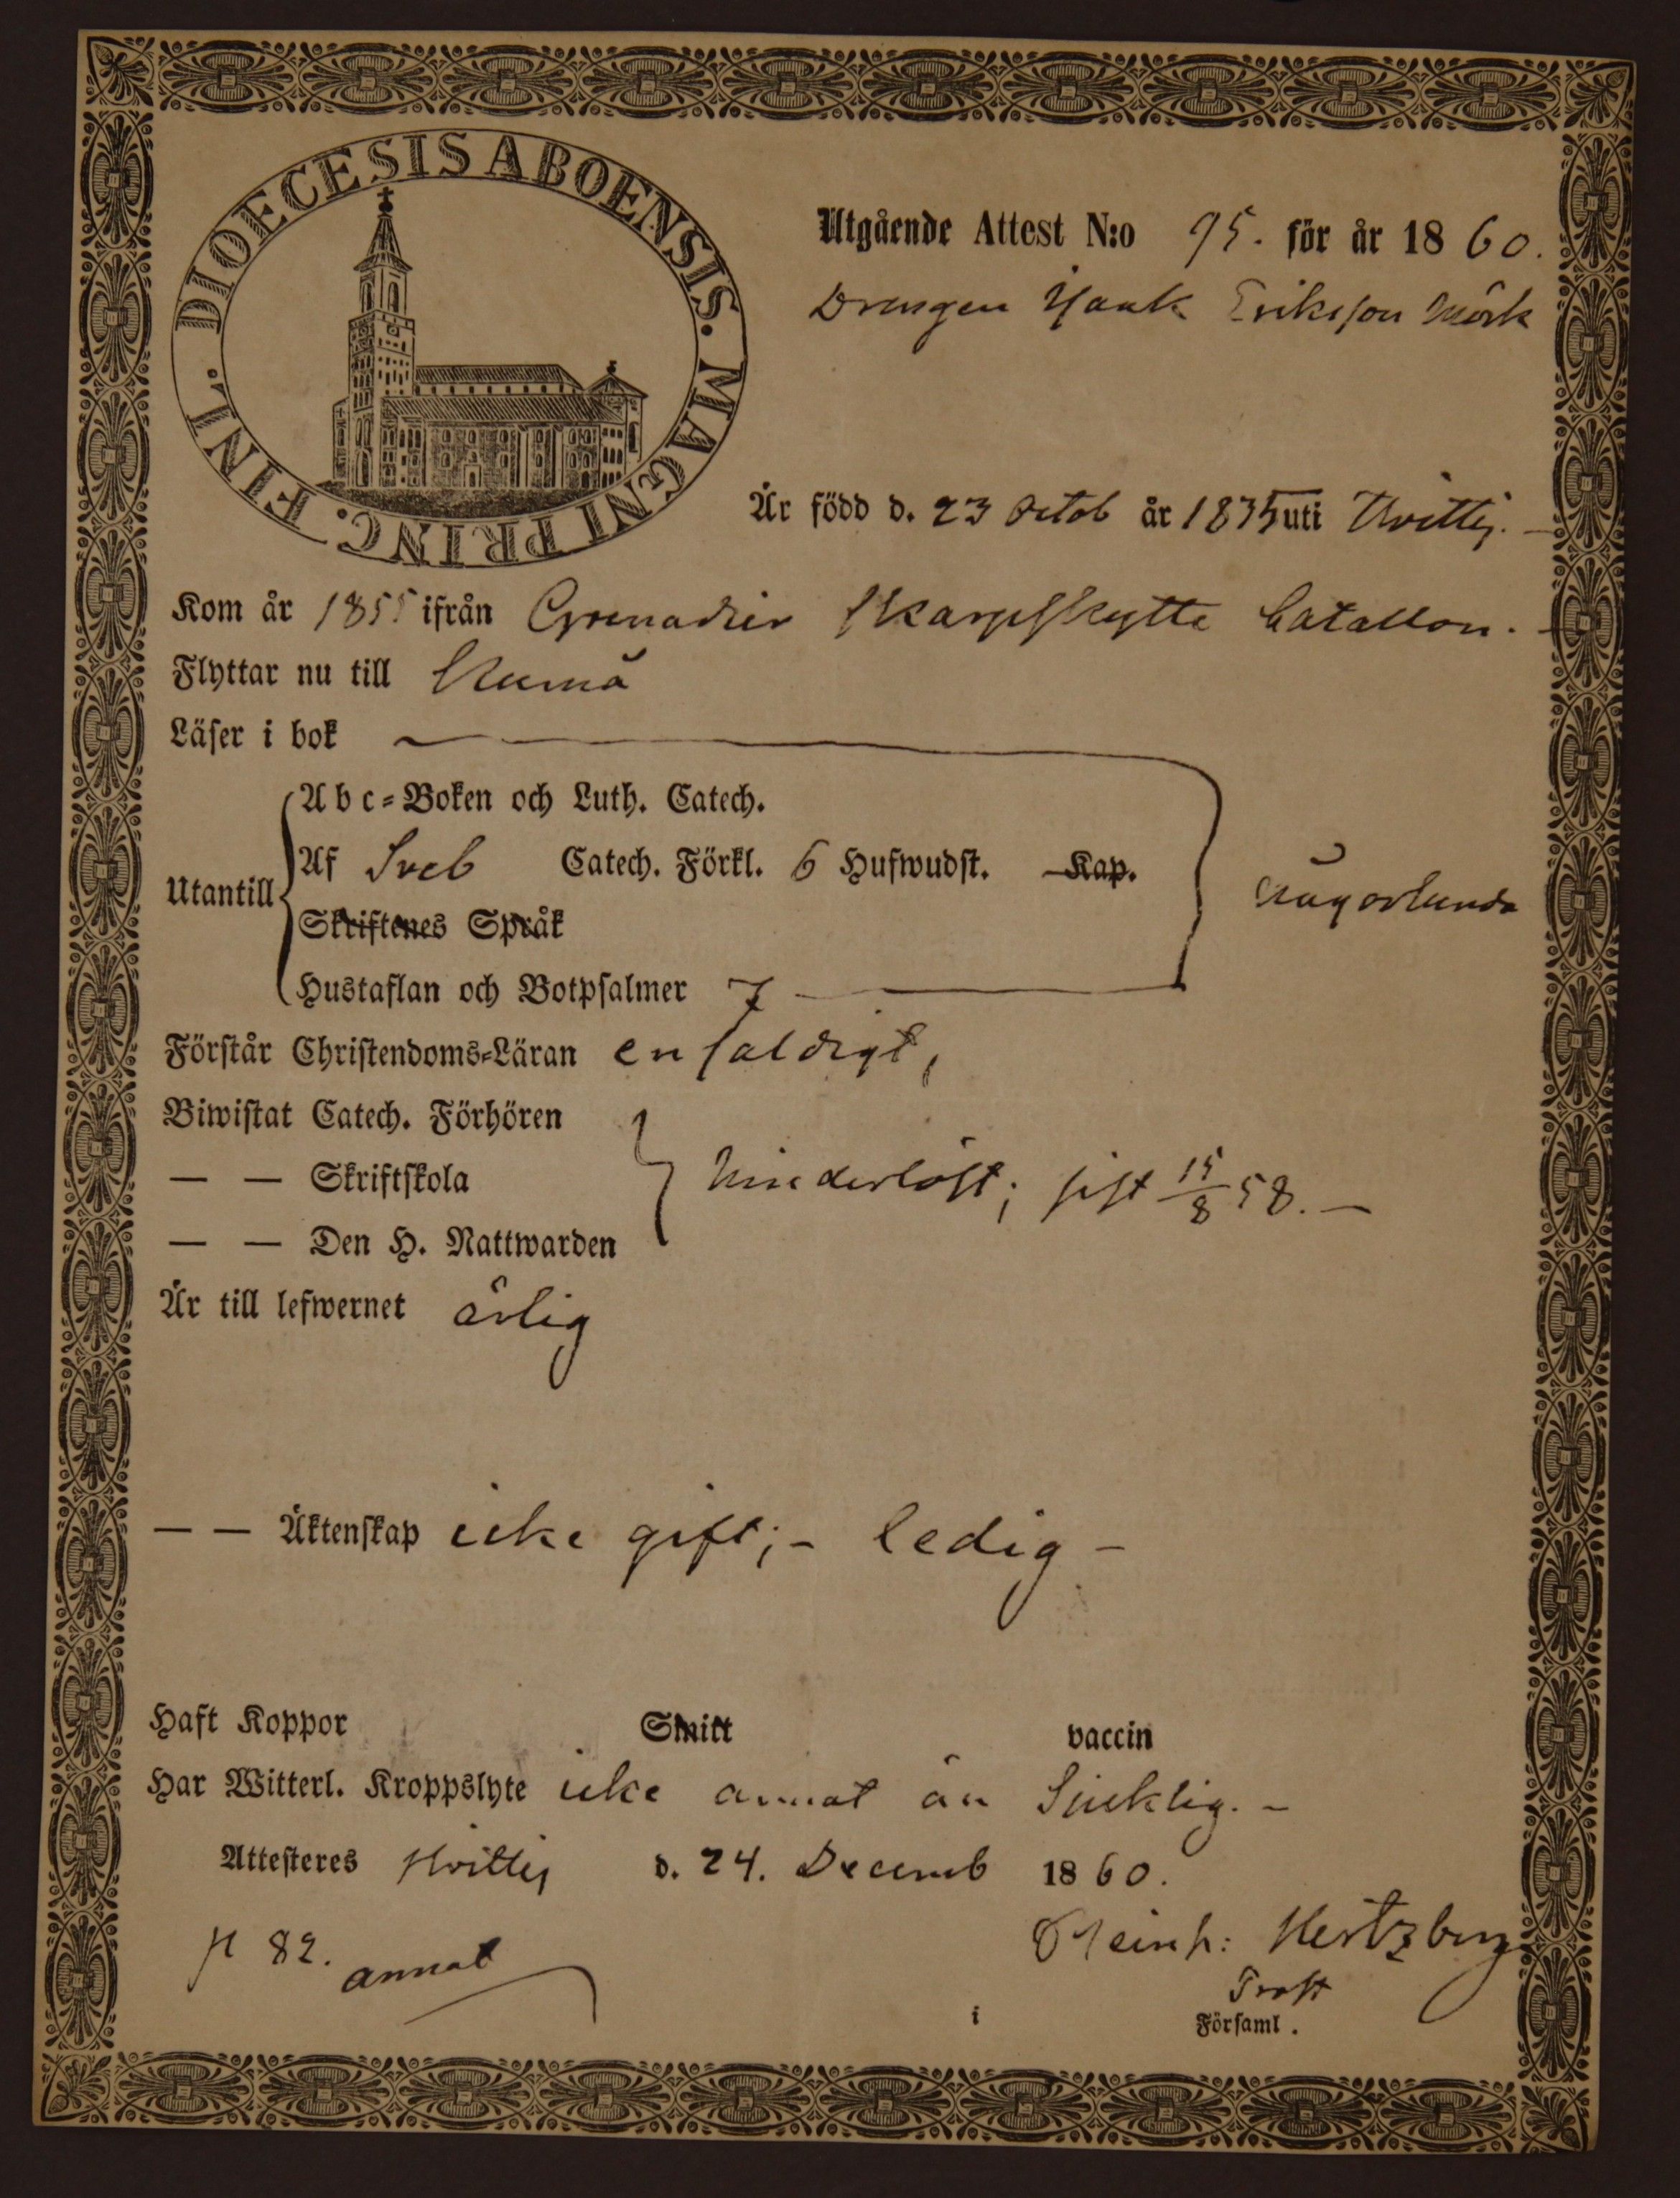 DIOECESIS ABOENSIS. MAGNI PRINC. FINL.
Utgående Attest N:o 95. för år 1860.
Drengen Isaak Eriksson Mörk
Är född d. 23 Octob år 1835 uti Hvittis. -
Kom år 1855 ifrån Grenadier Skarpskytte batallon. -
Flyttar nu till Kumå
Läser i bok
Abc-Boken och Luth. Catech.
Utantill Af Sveb Catech. Förkl. 6 Hufwudst. Kap.
Skriftenes Språk
Hustaflan och Botpsalmer 7
Förstår Christendoms-Läran enfaldigt,
Biwistat Catech. Förhören
— — Skriftskola hinderlöst; sist 15/8 58. -
— — Den H. Nattwarden
Är till lefwernet ärlig
— — Äktenskap icke gift; - ledig -
Haft Koppor Smitt vaccin
Har Witterl. Kroppslyte icke annat än Siuklig. -
Attesteres Hvittis d. 24. Decemb 1860.
p 82. annat Reinh: Hertzberg
Prost
i Församl.